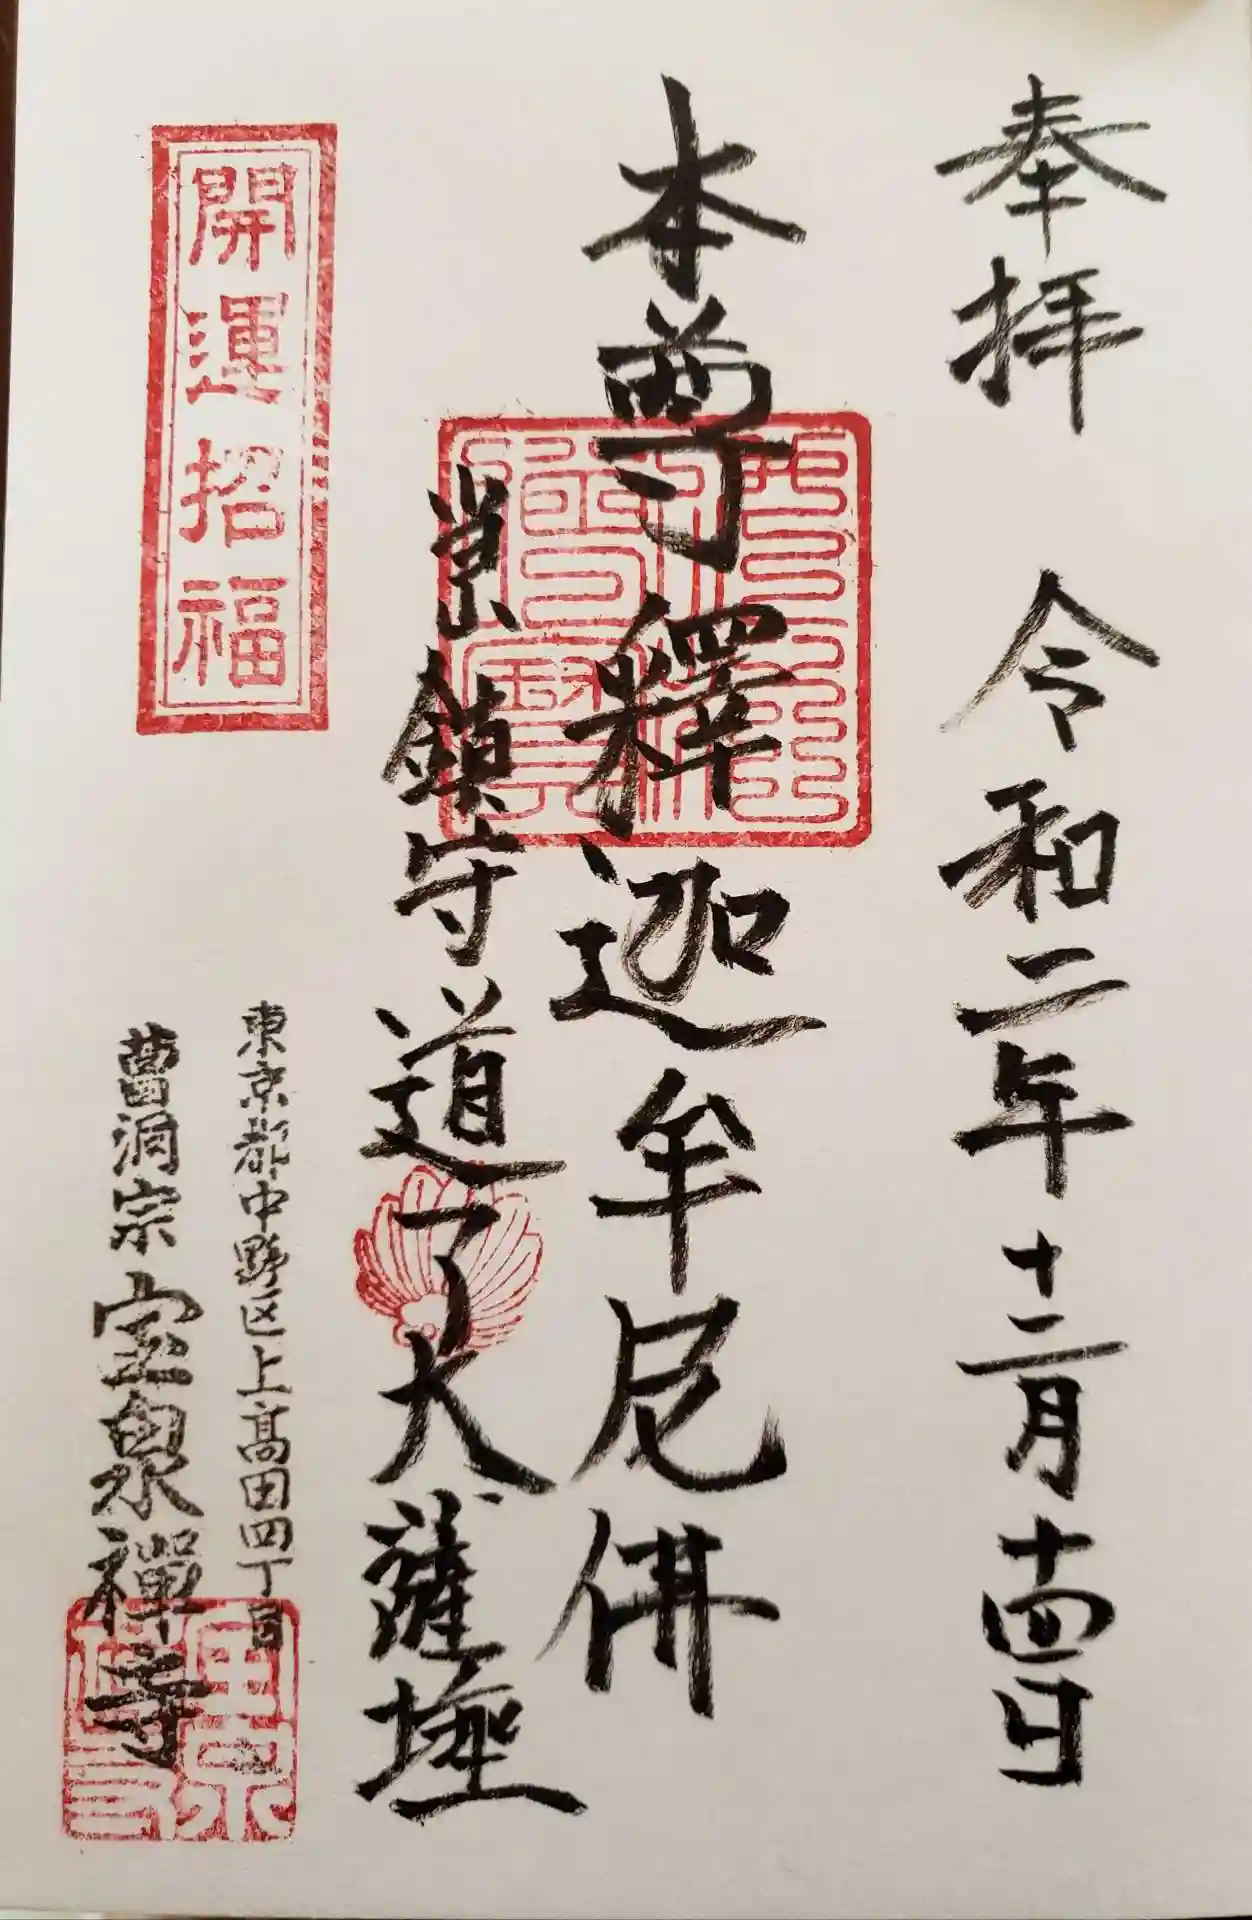 奉拝 令和二年十二月十四日
本尊釋迦牟尼佛
当山鎮守道了大薩埵
開運招福
東京都中野区上高田四丁目
曹洞宗 宝泉禅寺